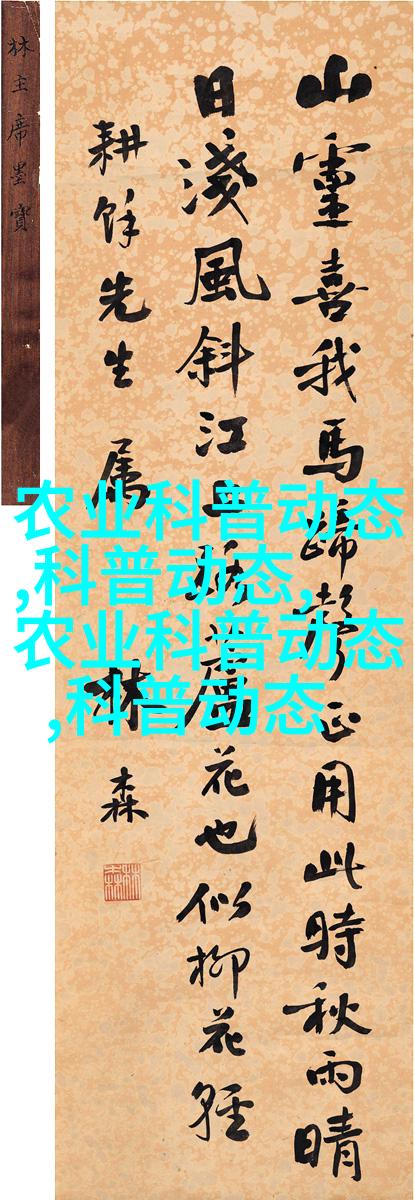 山靈喜我馬蹄聲正用此時秋雨晴
日淺風斜江上路蘆花也似柳花輕
耕餘先生属 林森
林主席墨寶
农业科普动态
,科普动态,
农业科普动态
,科普动态